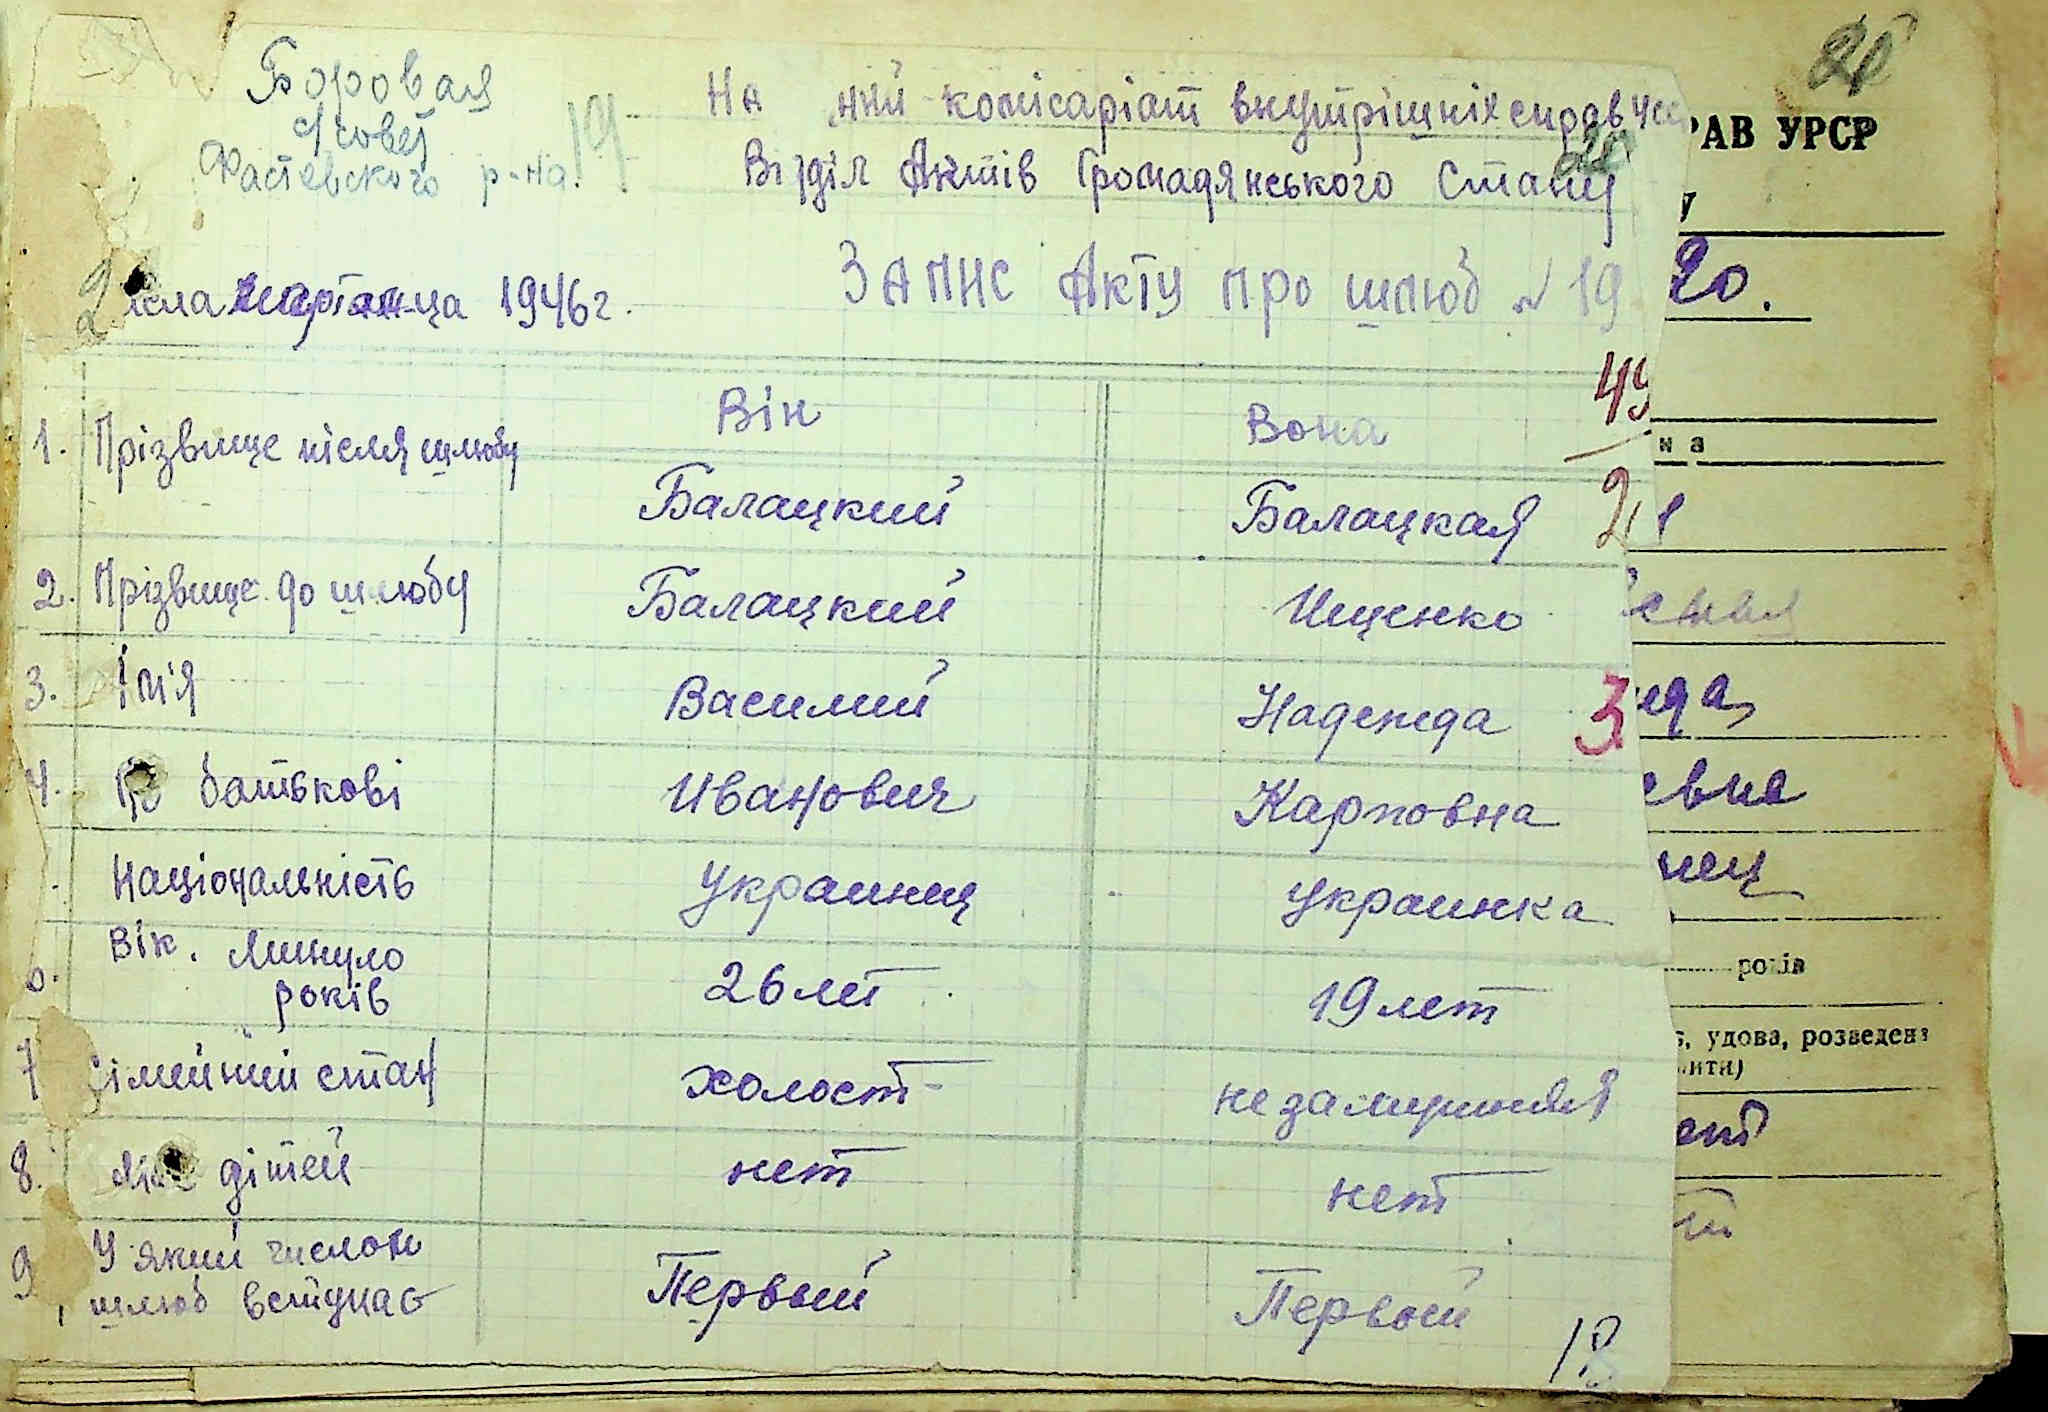 Боровая
с/совет
Фастевского р-на.
19
На ний комісаріат внутрішніх справ
Відділ Актів Громадянського Стану
числа марта м-ца 1946 г.
ЗАПИС АКТУ про шлюб № 19
49
Він
Вона
1. Прізвище після шлюбу
Балацкий
Балацкая
2
2. Прізвище до шлюбу
Балацкий
Ищенко
3. Ім'я
Василий
Надежда
3
4. По батькові
Иванович
Карповна
Національність
Украинец
Украинка
6. Вік. Минуло
років
26 лет
19 лет
7 сімейний стан
холост
незамужняя
8. дітей
нет
нет
9 У який числом
шлюб вступає
Первый
Первый
18
20
РАВ УРСР
у
20.
на
1
евна
років
, удова, розведена
ити)